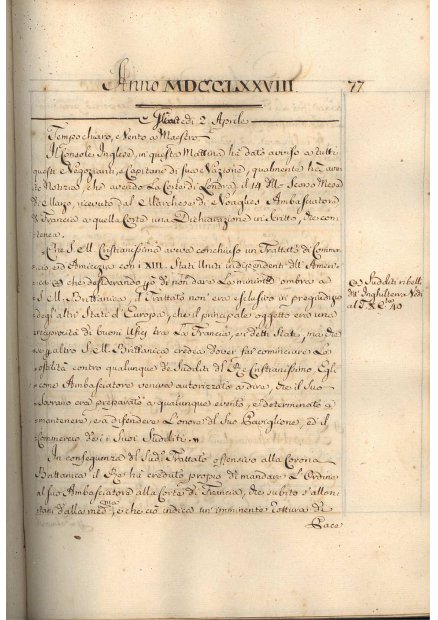 Anno MDCCLXXVIII.
77
Martedi 2 Aprile
Tempo chiaro, e Vento a Maestro
Il Console Inglese, in questa Mattina hà dato avviso a tutti
questi Negozianti, e Capitani di sua Nazione, qualmente hà avu-
to Notizia che avendo La Corte di Londra il 14 dello Scorso Mese
di Marzo, ricevuto dal Marchese di Noaglies Ambasciatore
di Francia a quella Corte una Dichiarazione in Scritto, che con-
teneva.
Che S. M. Cristianissima aveva conchiuso un Trattato di Commer-
cio, ed Amicizia con i XIII. Stati Uniti independenti dell' Ameri-
ca e che desiderando di non dare La minima ombra a
S. M. Brittanica, il Trattato non' era esclusivo in pregiudizio
degl' altri Stati d' Europa, che il principale oggetto era una
reciprocità di buoni Ufizj tra La Francia, e i detti Stati, ma che
se per altro S. M. Brittanica credea dover far cominciare Le
ostilità contro qualunque de Sudditi del Rè Cristianissimo Egli
come Ambasciatore veniva autorizzato a dire, che il Suo
Sovrano era preparato a qualunque evento, e determinato a
mantenere, e a difendere L'onore del Suo Paviglione, ed il
Commercio de i Suoi Sudditi.
In conseguenza del Sudo Trattato offensivo alla Corona
Brittanica il Rè hà creduto propio di mandare L'Ordine
al suo Ambasciatore alla Corte di Francia, che subito s'allon-
tani dalla medma, e che ciò indica un' imminente rottura di
Pace
Sudditi ribelli
dell' Inghilterra Vedi
40